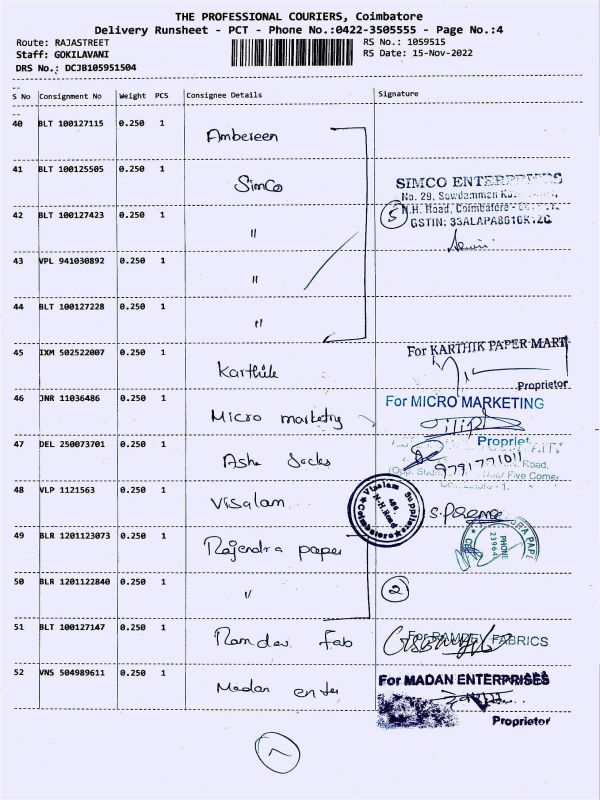 THE PROFESSIONAL COURIERS, Coimbatore
Delivery Runsheet - PCT - Phone No.:0422-3505555 - Page No.:4
Route: RAJASTREET RS No.: 1059515
Staff: GOKILAVANI RS Date: 15-Nov-2022
DRS No.: DCJB105951504
S No Consignment No Weight PCS Consignee Details Signature
40 BLT 100127115 0.250 1 Ambereen
41 BLT 100125505 0.250 1 SimCo
SIMCO ENTERPRISES
No. 29, Sowdamman
42 BLT 100127423 0.250 1 "
5 N.H. Road, Coimbatore -
GSTIN: 33ALAPA8616K1ZG
43 VPL 941030892 0.250 1 "
44 BLT 100127228 0.250 1 "
45 IXM 502522007 0.250 1 Karthik
For KARTHIK PAPER MART
Proprietor
46 JNR 11036486 0.250 1 Micro marketing
For MICRO MARKETING
Propriet
47 DEL 250073701 0.250 1 Asha Sacks
9791771011
Road,
Five Corner
48 VLP 1121563 0.250 1 Visalam
Visalam Supplies
486,
N.H.Road
Coimbatore
49 BLR 1201123073 0.250 1 Rajendra paper
PHONE
23964
50 BLR 1201122840 0.250 1 "
2
51 BLT 100127147 0.250 1 Ramdev Fab
For RAMDEV FABRICS
52 VNS 504989611 0.250 1 Madan enter
For MADAN ENTERPRISES
Proprietor